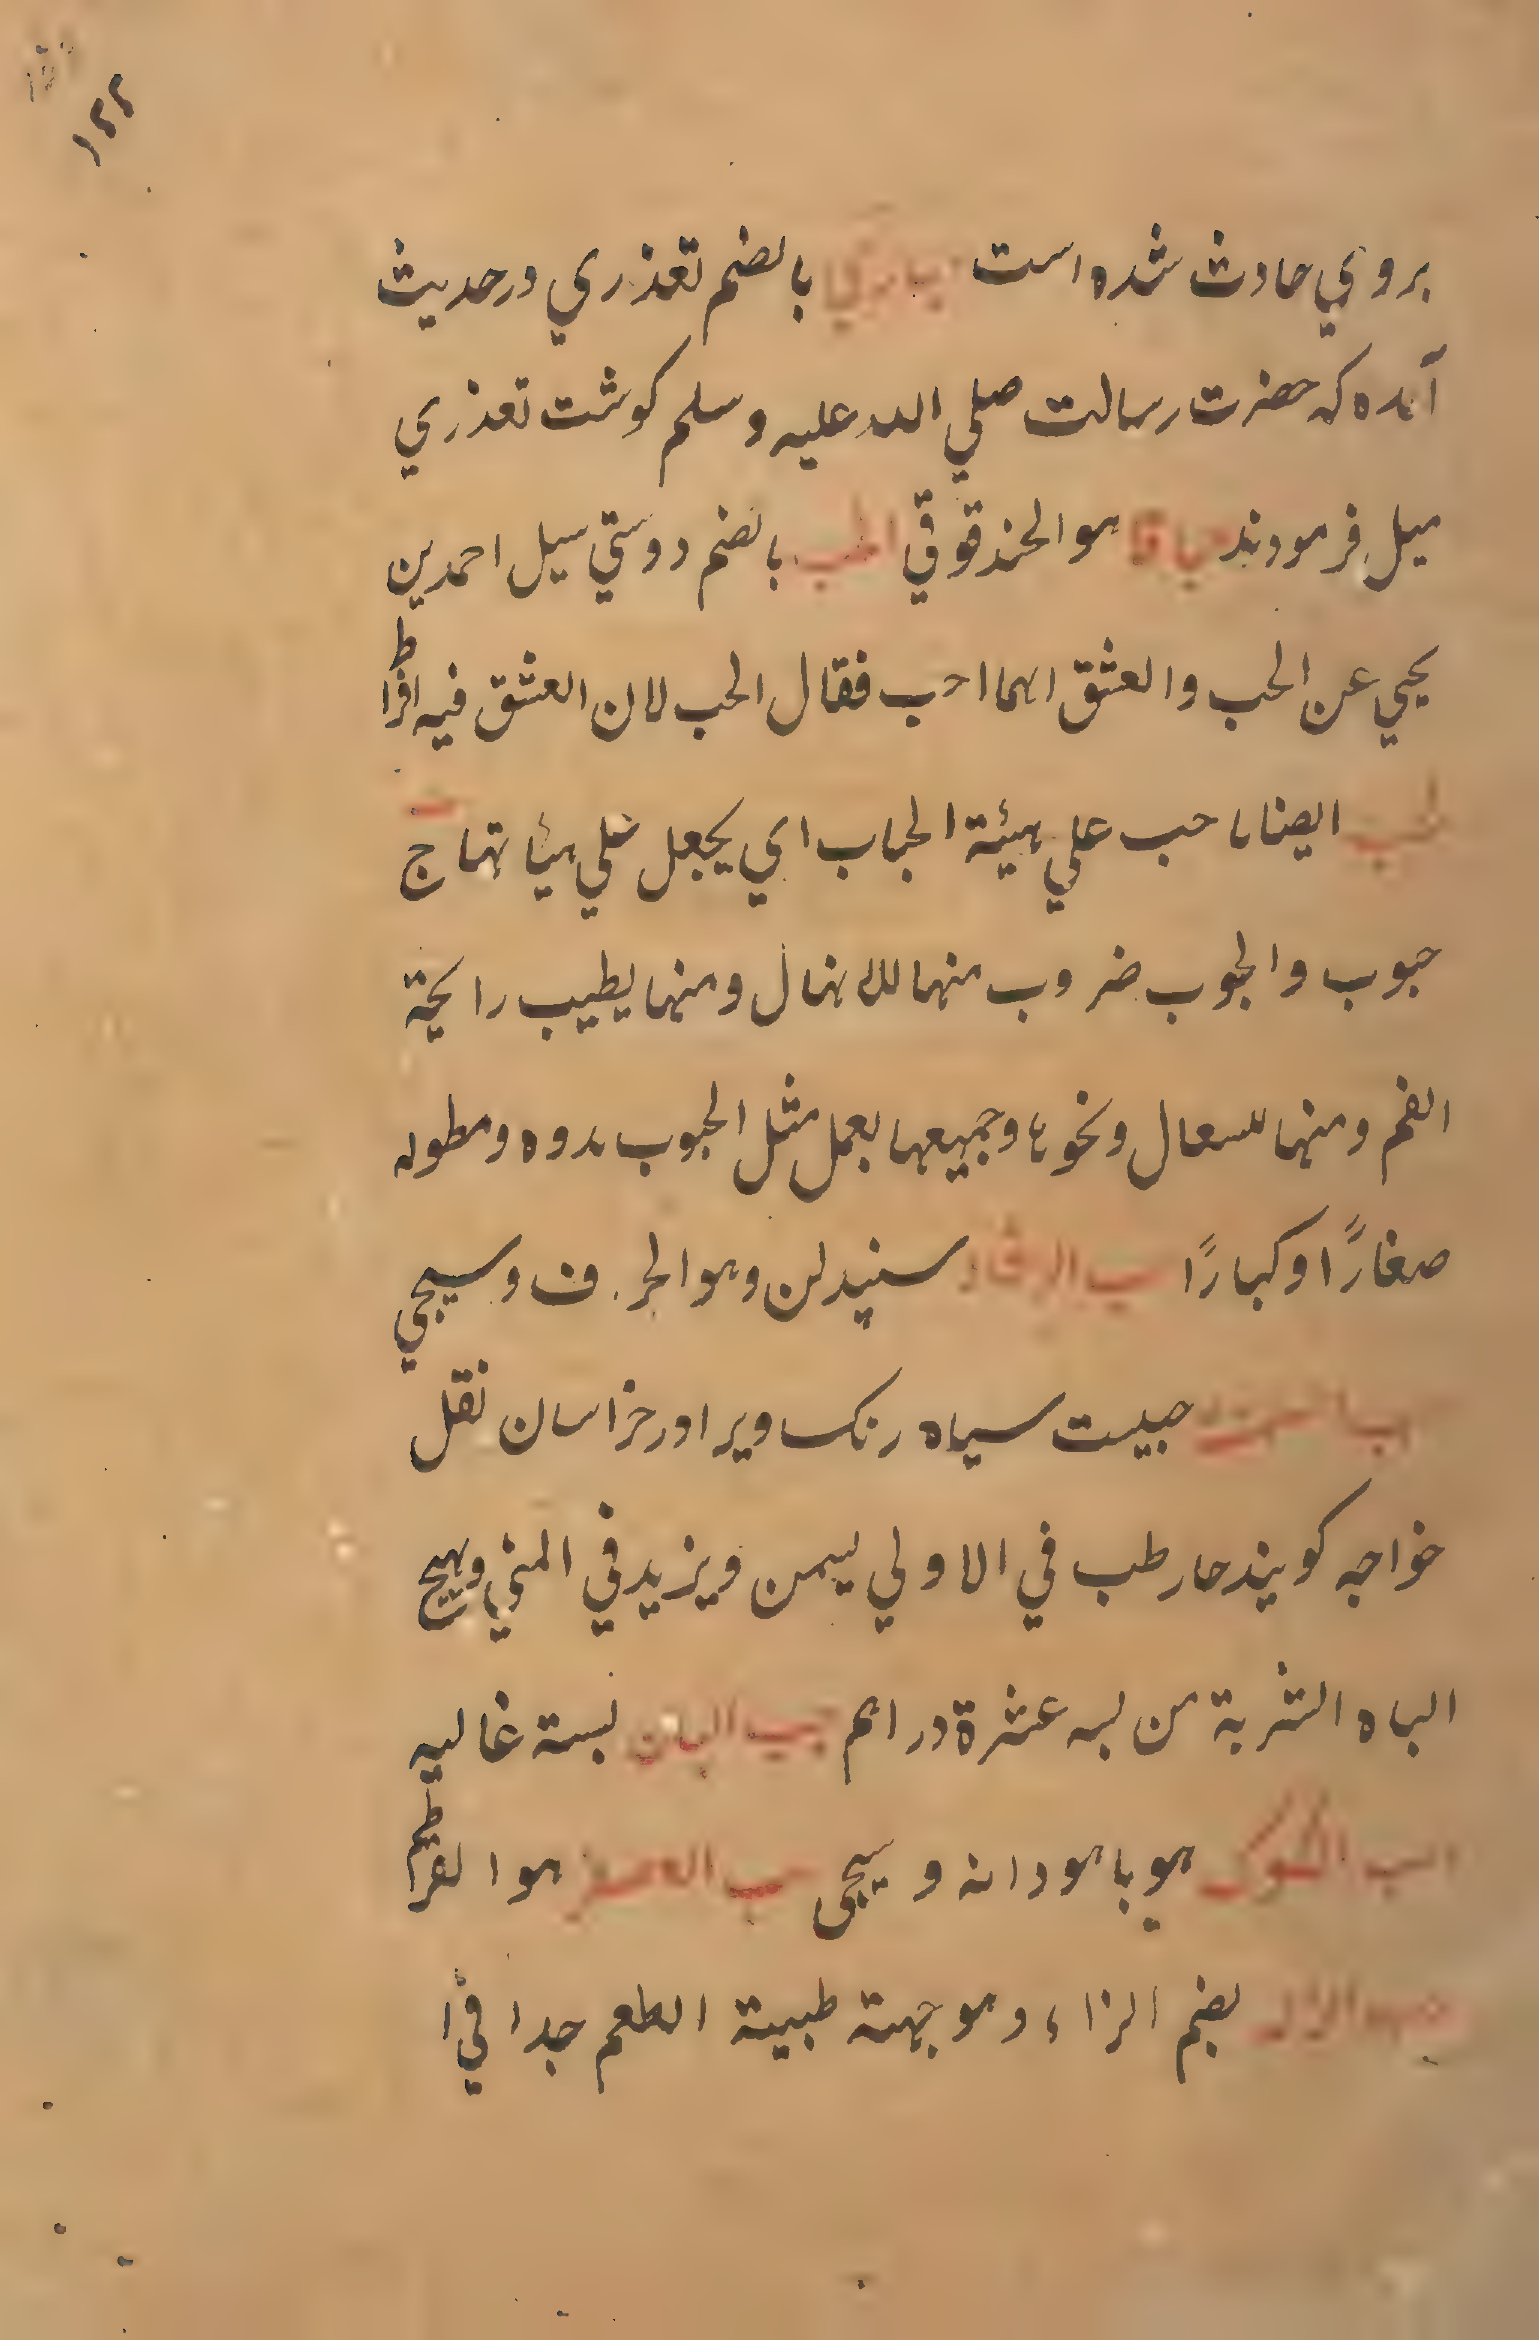 ۱۲۲
بروي حادث شده است حباري بالضم تغذري درحديث
آمده كه حضرت رسالت صلي الله عليه وسلم كوشت تغذري
ميل فرمودند حباقا هو الحندقوقي الحب بالضم دوستي سيل احمد بن
يحيي عن الحب والعشق ايهما احب فقال الحب لان العشق فيه افراط
الحب ايضا ما حب علي هيئة الحباب اي يجعل علي هيأتها ج
حبوب والحبوب ضروب منها للاسهال ومنها يطيب رايحة
الفم ومنها للسعال ونحوها وجميعها يعمل مثل الحبوب مدوه ومطوله
صغارًا وكبارًا حب الرشاد سپندان وهو الحرف وسيجي
حب السمنة حبيست سياه رنك ويرا در خراسان نقل
خواجه كويند حار رطب في الاولي يسمن ويزيد في المني ويهيج
الباه الشربة من لبه عشرة دراهم حب البان بسته غاليه
حب الملوك هو ماهودانه وسيجي حب العصفر هو القرطم
حب الزلم بضم الزاء وهو حبة طيبة الطعم جدا في ا